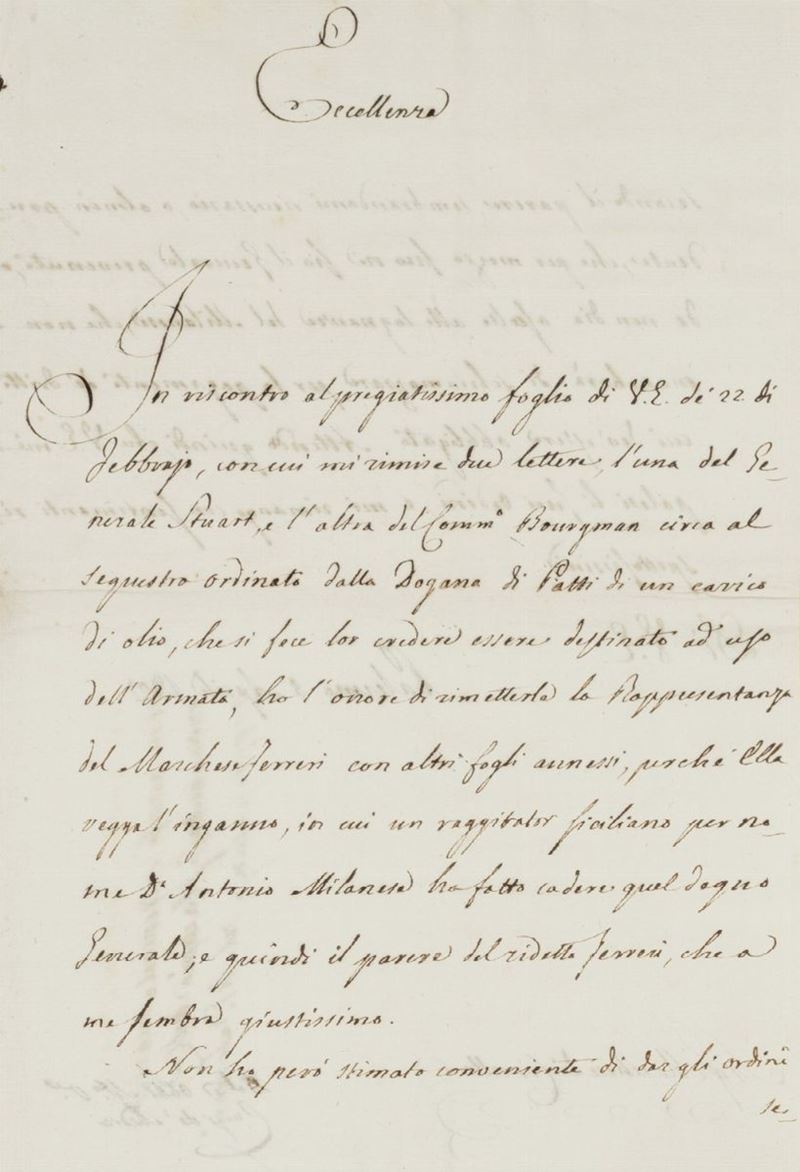 Eccellenza
In riscontro al pregiatissimo foglio di V.E. de' 22 di
Febbrajo, con cui mi rimise due lettere, l'una del Ge-
nerale Stuart, e l'altra del Comm.º Bourgman circa al
sequestro ordinato dalla Dogana di Patti di un carico
di olio, che si fece lor credere essere destinato ad uso
dell'Armata, ho l'onore di rimetterle la Rappresentanza
del Marchese Ferreri con altri fogli annessi, perchè Ella
vegga l'inganno, in cui un raggirator siciliano per no-
me D.n Antonio Milanese ha fatto cadere quel degno
Generale; e quindi il parere del ridetto Ferreri, che a
me sembra giustissimo.
Non ho però stimato conveniente di dar gli ordini
se-